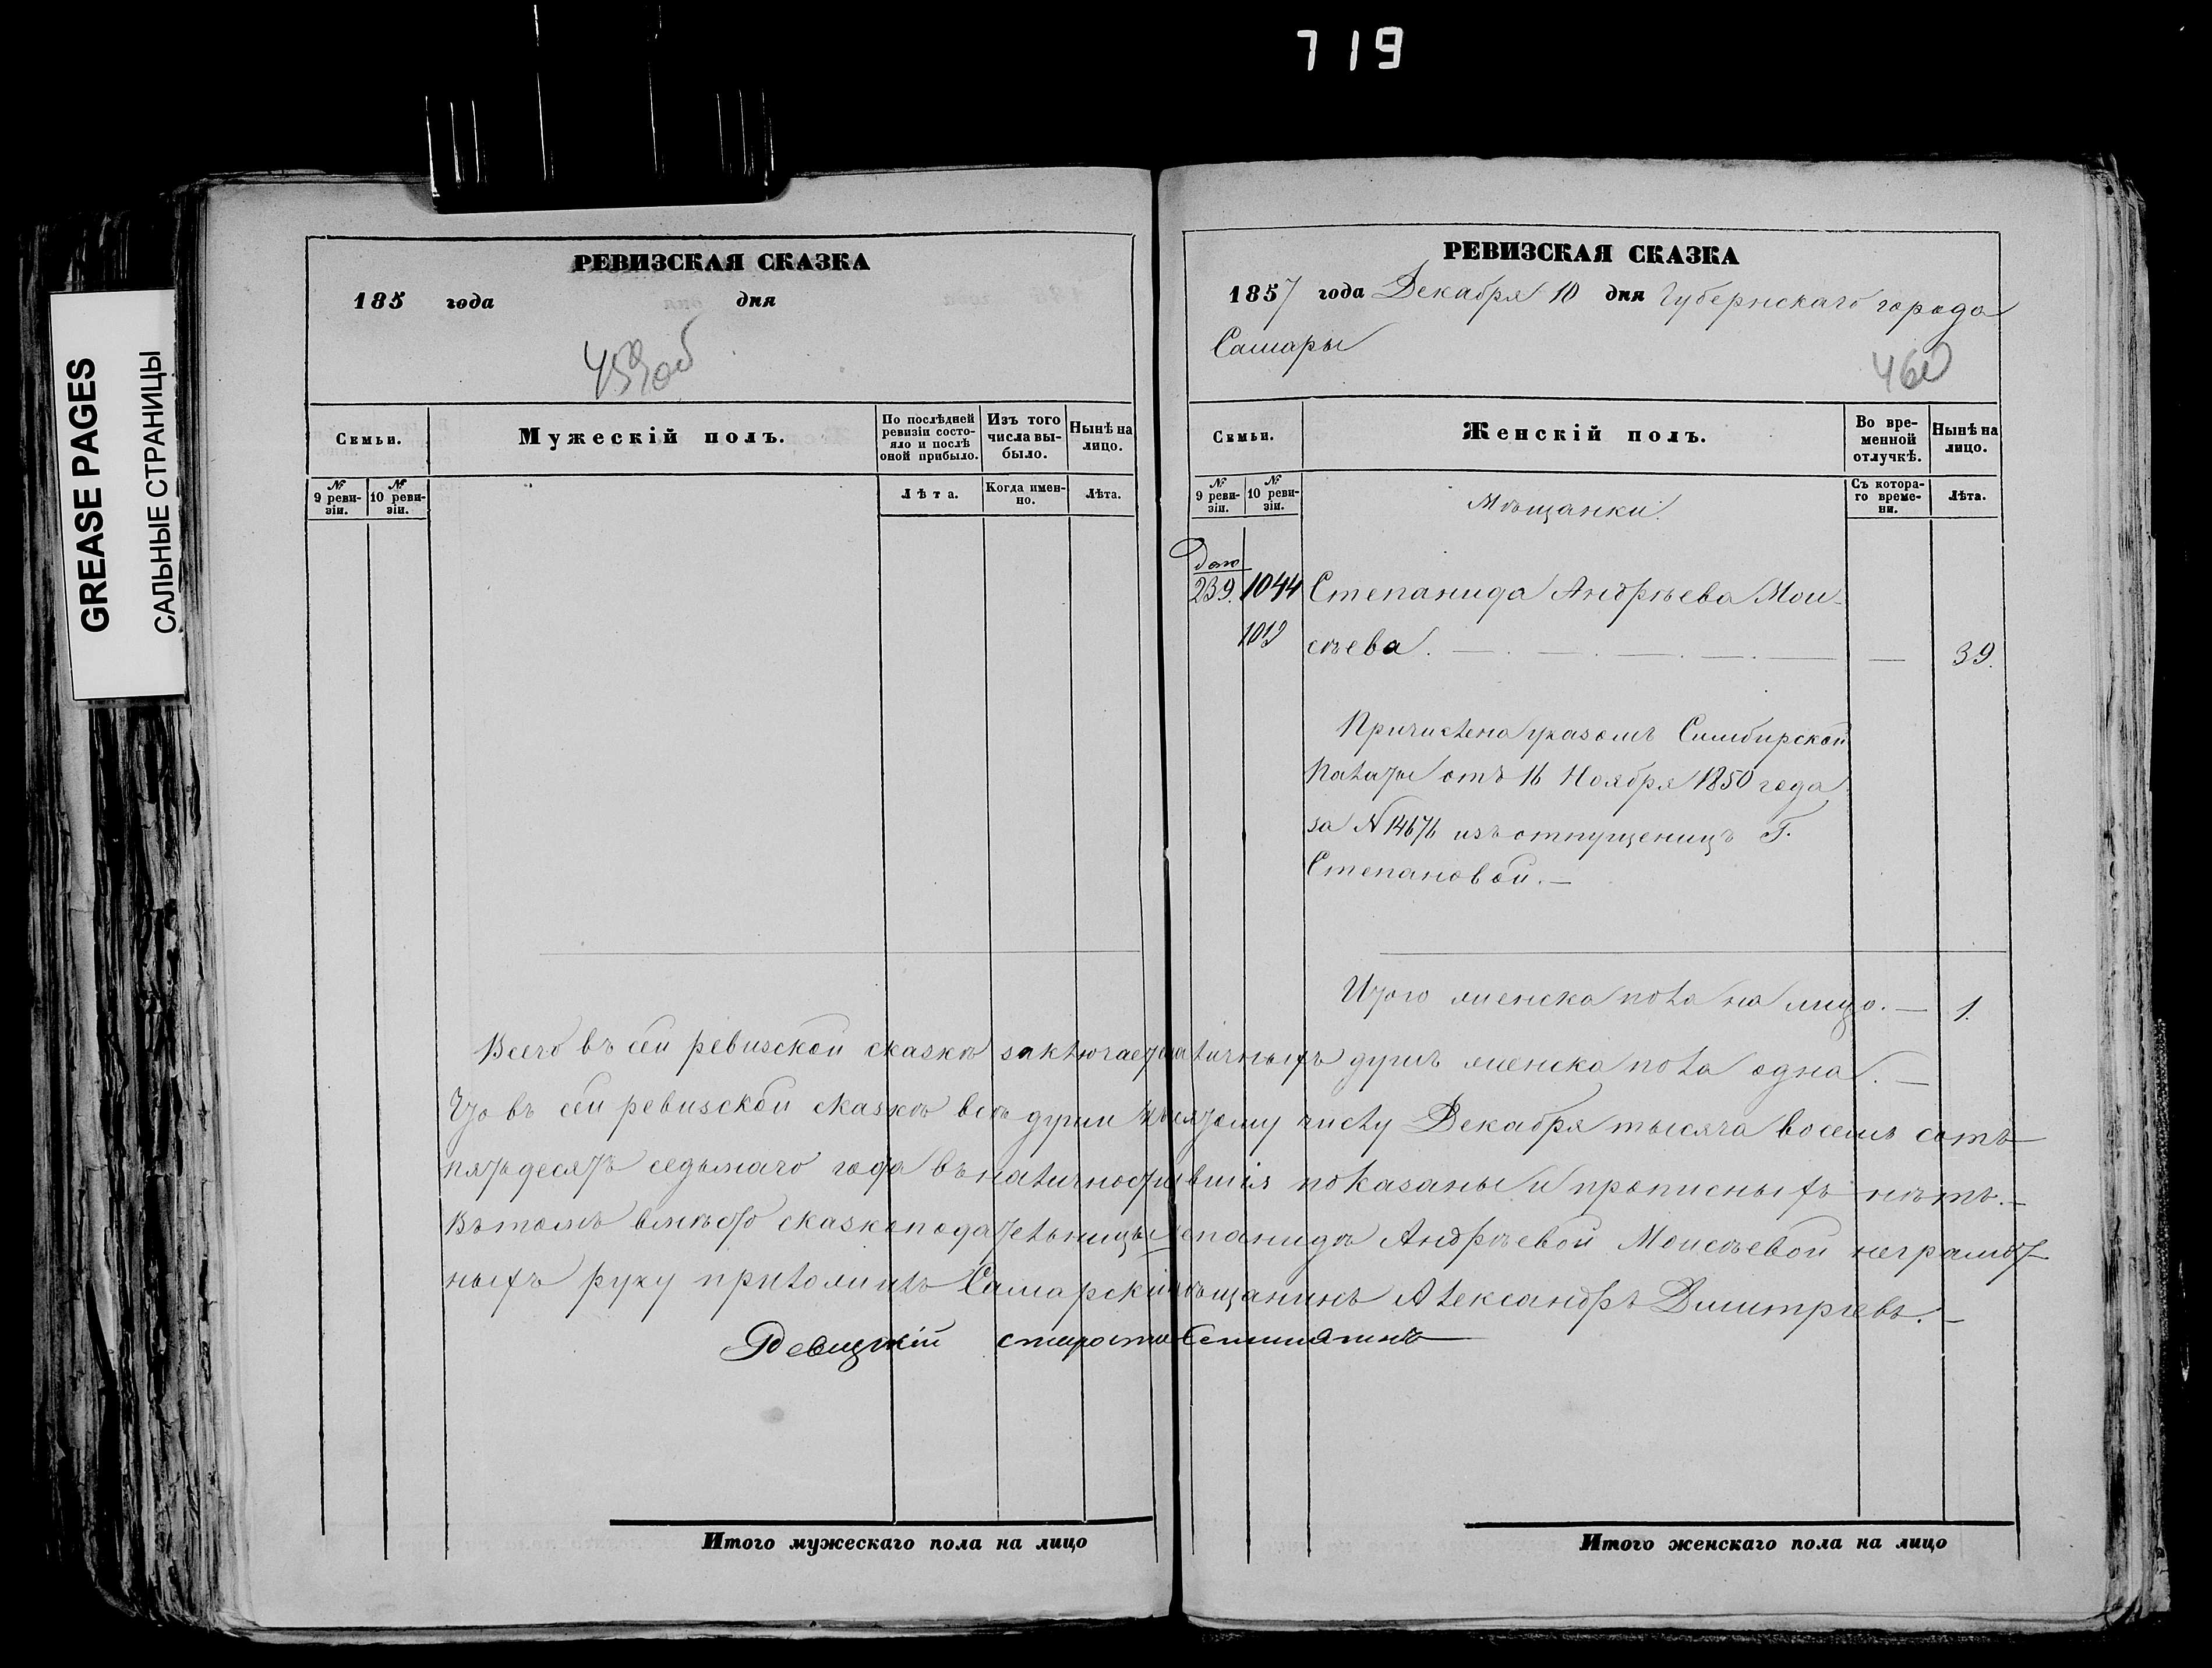 719
GREASE PAGES
САЛЬНЫЕ СТРАНИЦЫ
РЕВИЗСКАЯ СКАЗКА
185 года дня
459об
Семьи.
Мужескій полъ.
По послѣдней ревизіи состояло и послѣ оной прибыло.
Изъ того числа выбыло.
Нынѣ на лицо.
№ 9 ревизіи.
№ 10 ревизіи.
Лѣта.
Когда именно.
Лѣта.
Итого мужескаго пола на лицо
РЕВИЗСКАЯ СКАЗКА
1857 года Декабря 10 дня Губернскаго города
Самары
460
Семьи.
Женскій полъ.
Во временной отлучкѣ.
Нынѣ на лицо.
№ 9 ревизіи.
№ 10 ревизіи.
Съ котораго времени.
Лѣта.
Мѣщанки.
239. 1044 Степанида Андрѣева Мои-
1019 сѣева. — 39.
Причислена указомъ Симбирской
Палаты отъ 16 Ноября 1850 года
за N 14676 изъ отпущеницъ Г.
Степановой. —
Итого женска пола на лицо. — 1.
Всего въ сей ревизской сказкѣ заключается наличныхъ душъ женска пола одна. —
Что въ сей ревизской сказкѣ всѣ души къ числу Декабря тысяча восемь сотъ
пятьдесятъ седьмаго года въ наличности бывшія показаны и прописныхъ нѣтъ. —
Въ томъ вмѣсто сказкоподательницы Степаниды Андрѣевой Моисѣевой неграмот-
ныхъ руку приложилъ Самарскій мѣщанинъ Александръ Дмитріевъ. —
староста
Итого женскаго пола на лицо